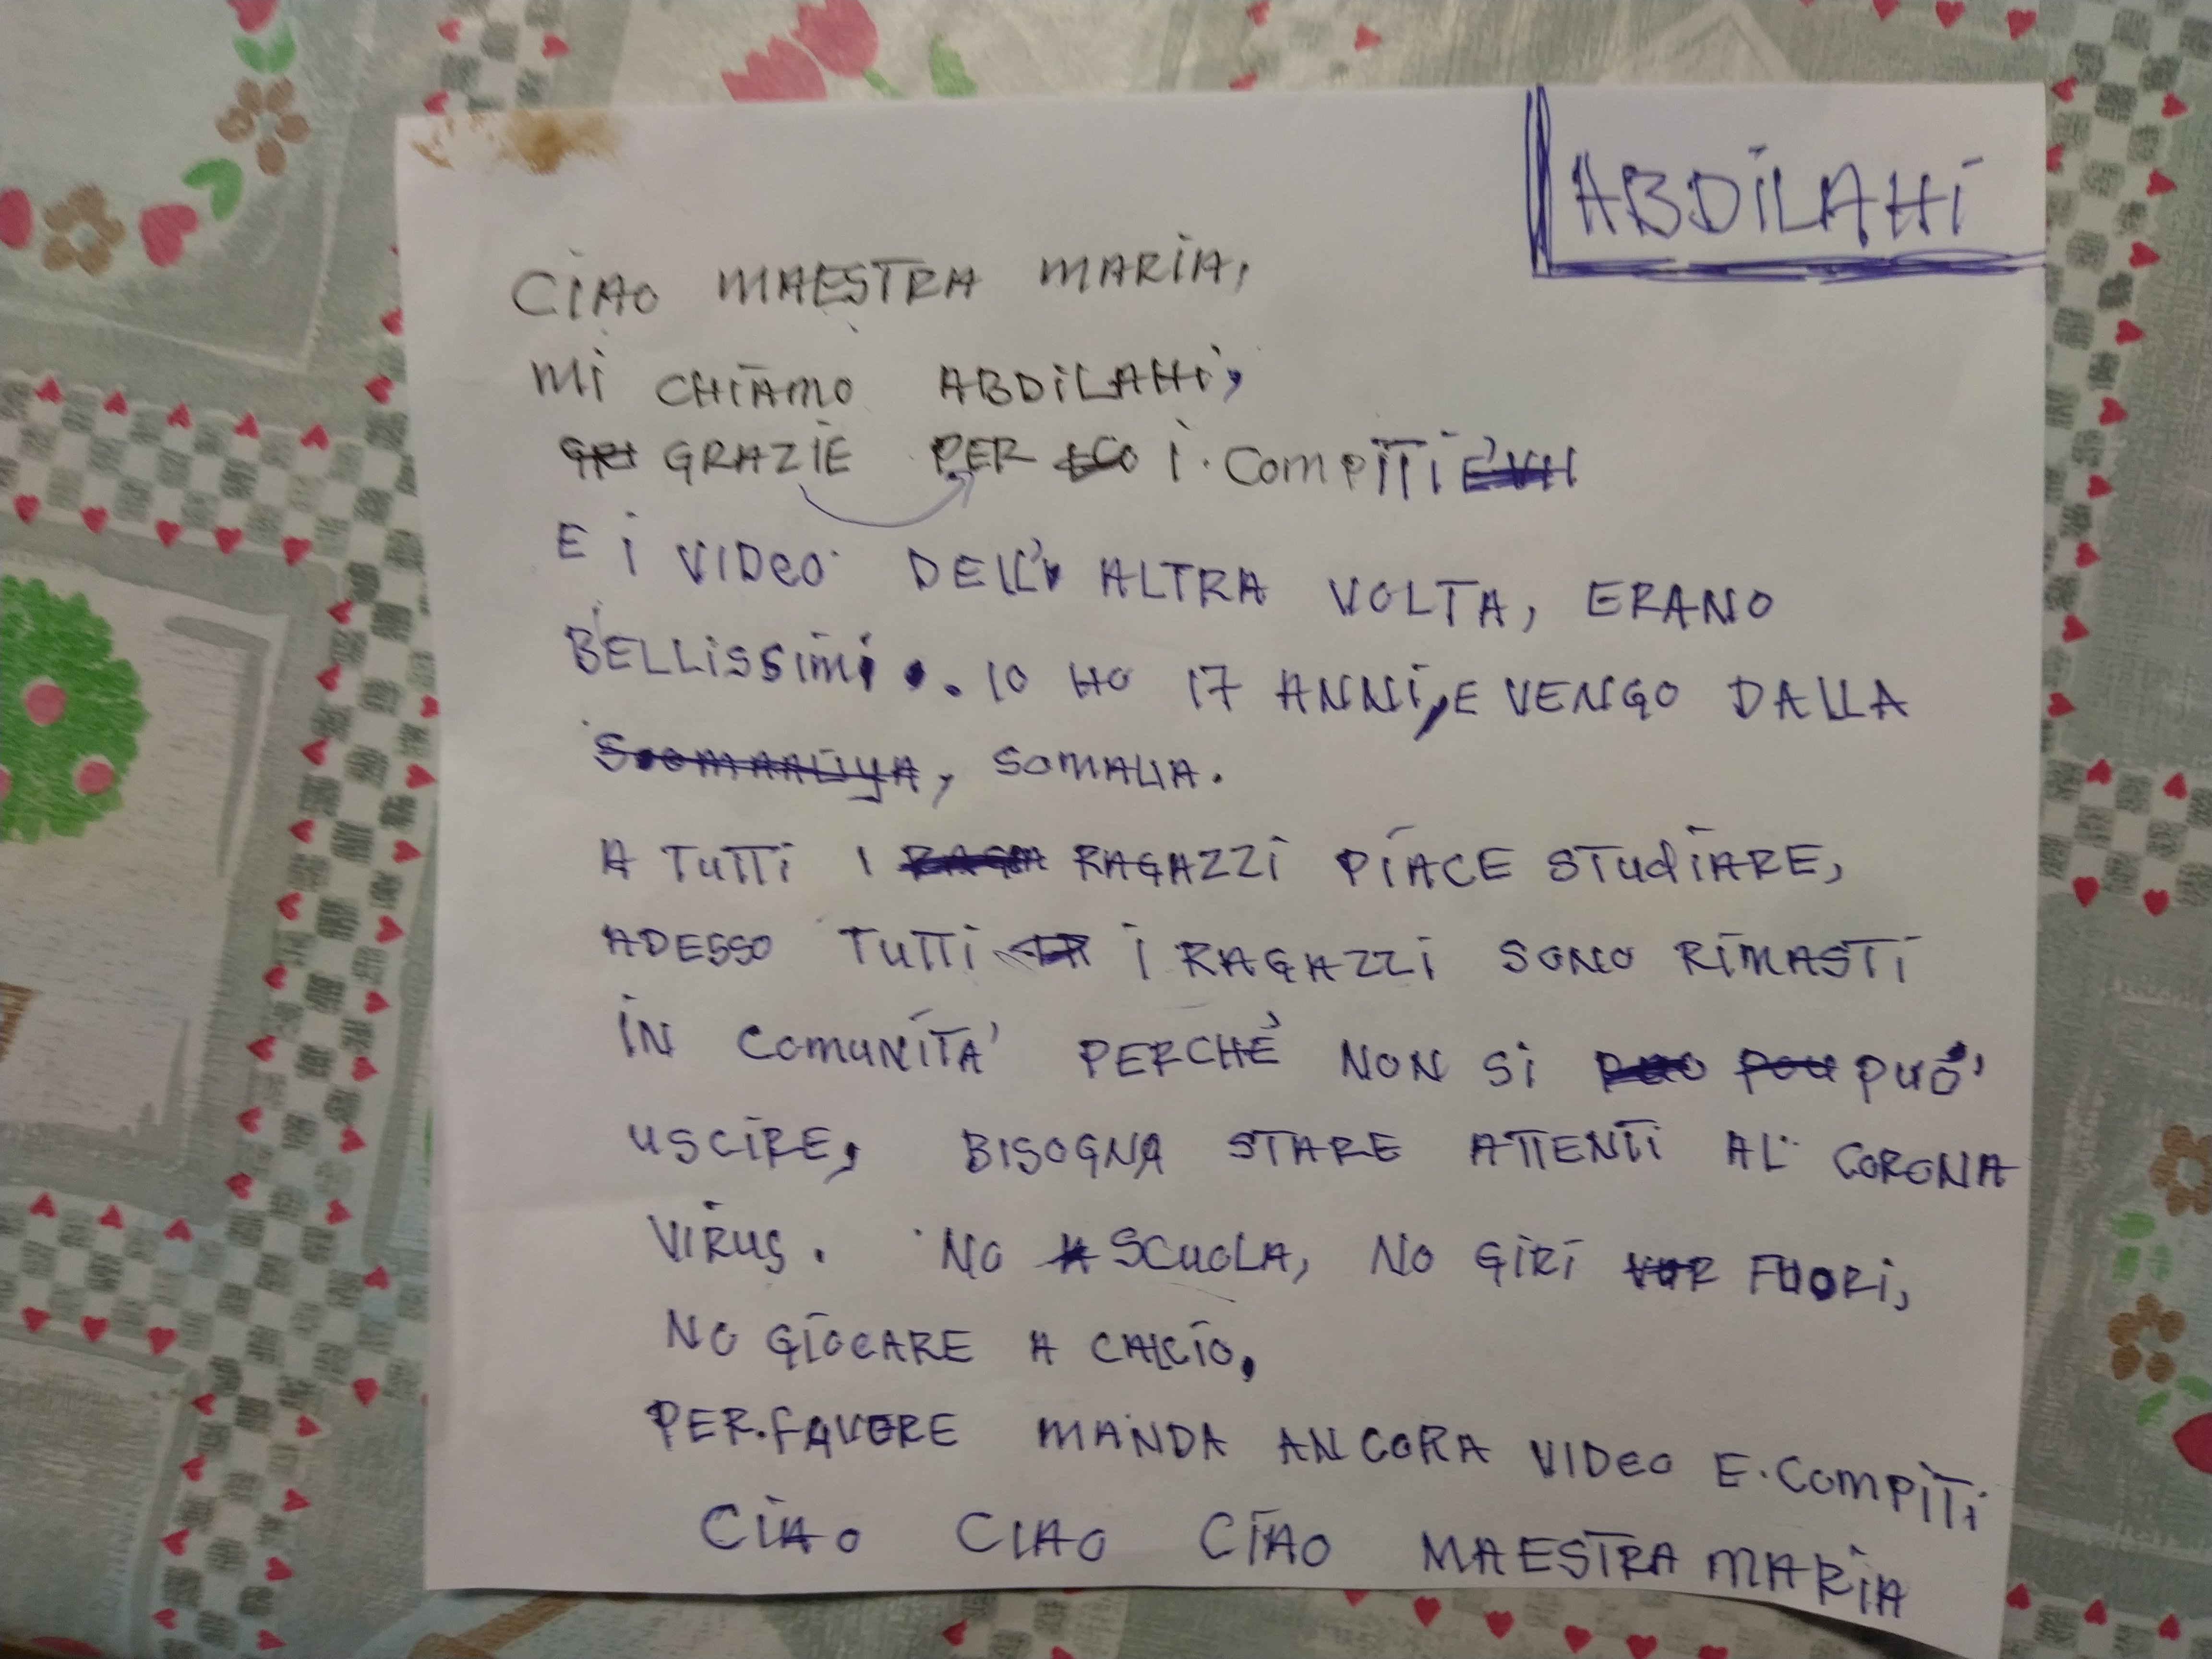 ABDILAHI
CIAO MAESTRA MARIA,
MI CHIAMO ABDILAHI,
GRAZIE PER I COMPITI
E I VIDEO DELL' ALTRA VOLTA, ERANO
BELLISSIMI. IO HO 17 ANNI, E VENGO DALLA
Soomaaliya, SOMALIA.
A TUTTI I RAGAZZI PIACE STUDIARE,
ADESSO TUTTI I RAGAZZI SONO RIMASTI
IN COMUNITA' PERCHÉ NON SI PUÓ'
USCIRE, BISOGNA STARE ATTENTI AL CORONA
VIRUS. NO SCUOLA, NO GIRI FUORI,
NO GIOCARE A CALCIO,
PER.FAVORE MANDA ANCORA VIDEO E.COMPITI
CIAO CIAO CIAO MAESTRA MARIA